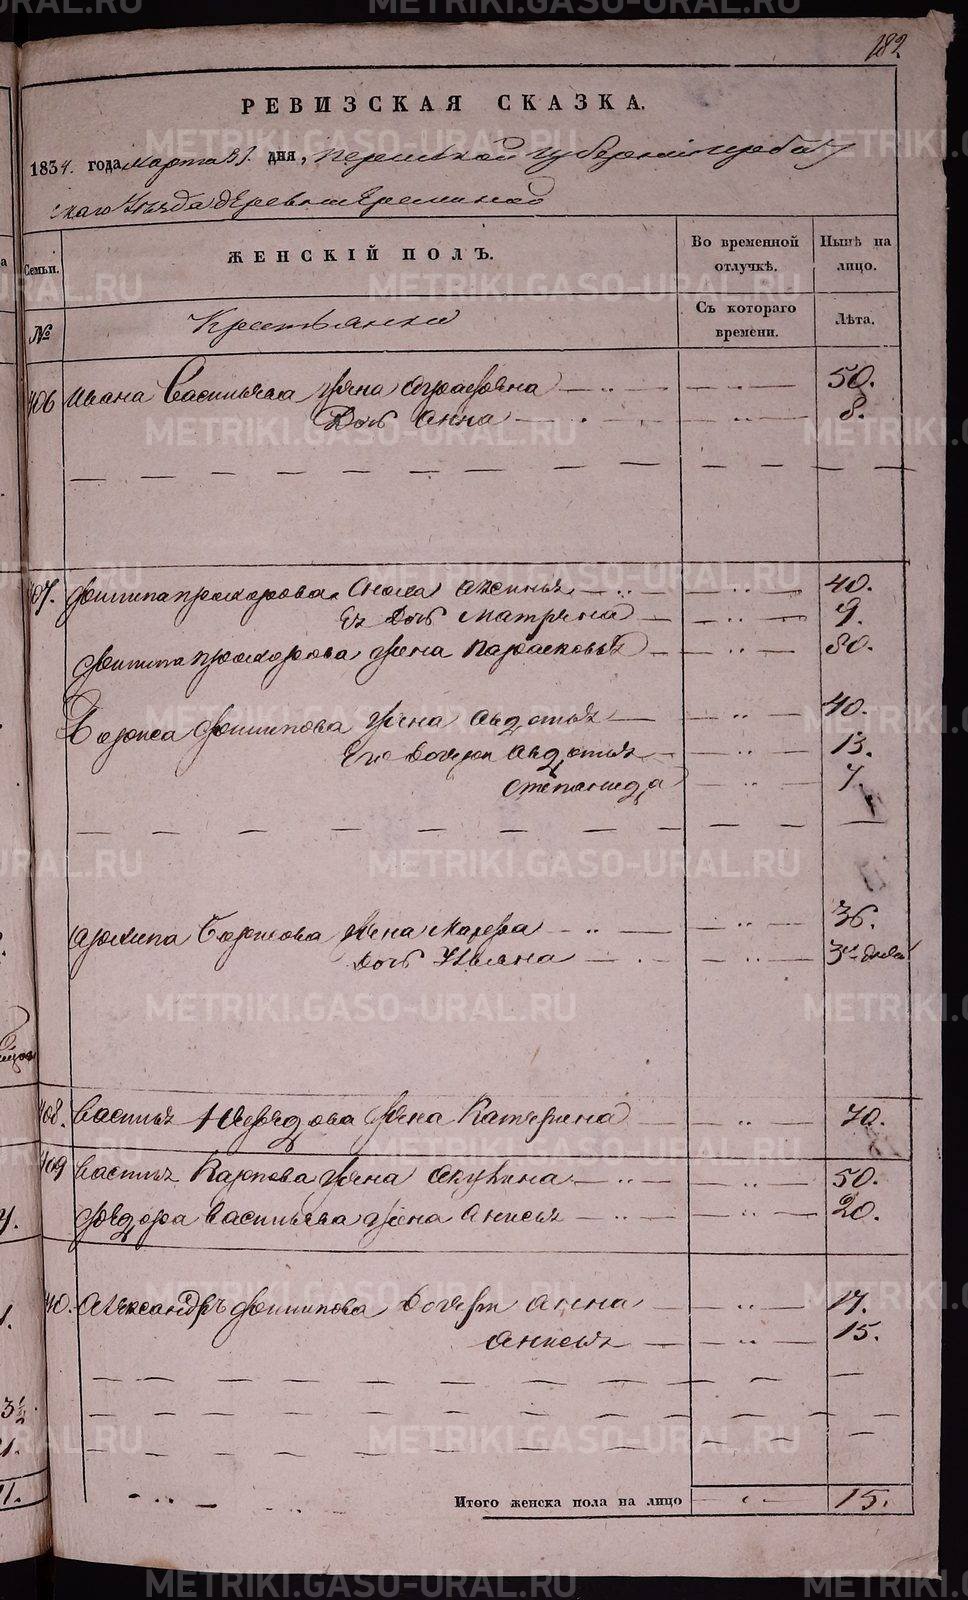 182.
РЕВИЗСКАЯ СКАЗКА.
1834. года марта 31. дня, Пермской губернии Ирбит
скаго Уезда деревни Ереминой
Семьи.
ЖЕНСКІЙ ПОЛЪ.
Во временной отлучкѣ.
Нынѣ на лицо.
№
Крестьянки
Съ котораго времени.
Лѣта.
406 Ивана Васильева жена Аграфена 50.
Дочь Анна 8.
407. Филипа Прохорова Сноха Аксинья 40.
Ея Дочь Матрена 9.
Филипа Прохорова жена Парасковья 80.
Бориса Филипова жена Авдотья 40.
Его Дочери Авдотья 13.
Степанида 7.
Архипа Борисова жена Марфа 36.
Дочь Ульяна
408. Василья жена Катерина 70.
409 Василья Карпова жена Акулина 50.
Федора Васильева жена Анисья 20.
410. Александръ Филипова Дочери Анна 17.
Анисья 15.
Итого женска пола на лицо 15.
METRIKI.GASO-URAL.RU